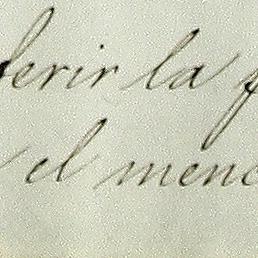 ferir la f
el menc